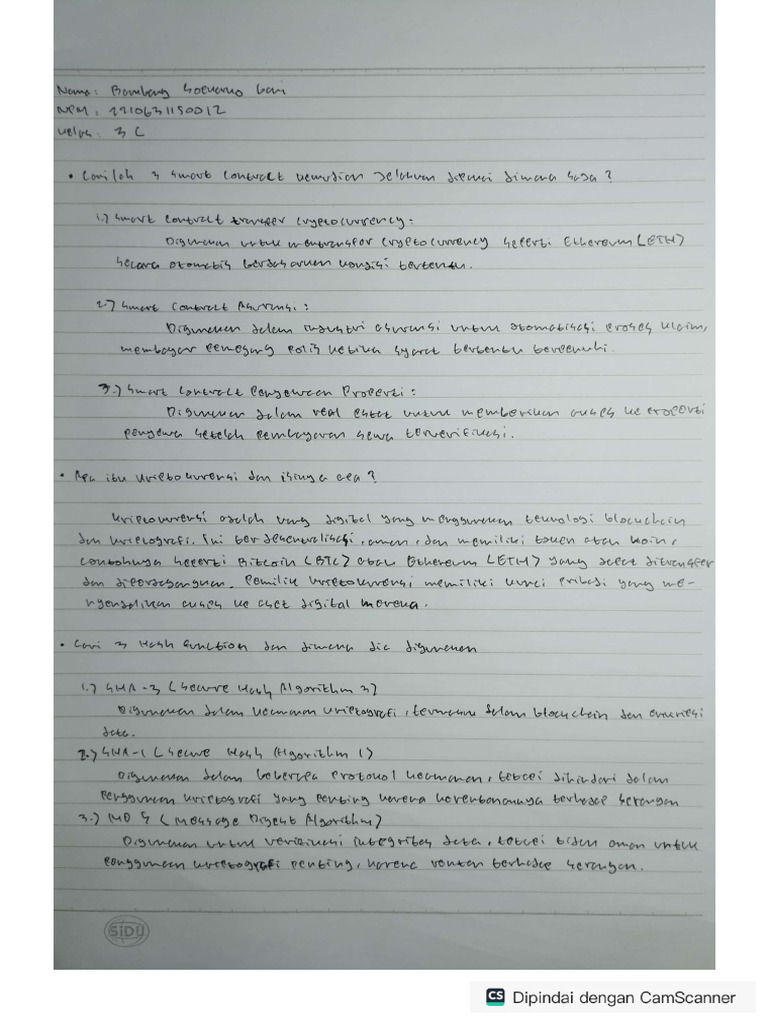 Nama: Bambang Soenarno Gani
NPM: 2210631150012
Kelas: 3 C
• Carilah 3 smart contract kemudian Jelaskan dipakai dimana saja?
1.) Smart contract transfer cryptocurrency:
Digunakan untuk mentransfer cryptocurrency seperti Ethereum (ETH)
secara otomatis berdasarkan kondisi tertentu.
2.) Smart Contract Asuransi:
Digunakan dalam industri asuransi untuk otomatisasi proses klaim,
membayar pemegang polis ketika syarat tertentu terpenuhi.
3.) Smart Contract Penyewaan Properti:
Digunakan dalam real estat untuk memberikan akses ke properti
penyewa setelah pembayaran sewa terverifikasi.
• Apa itu kriptokurensi dan isinya apa?
Kriptokurensi adalah uang digital yang menggunakan teknologi blockchain
dan kriptografi. Ini terdesentralisasi, aman, dan memiliki token atau koin,
contohnya seperti Bitcoin (BTC) atau Ethereum (ETH) yang dapat ditransfer
dan diperdagangkan. Pemilik kriptokurensi memiliki kunci pribadi yang me-
ngendalikan akses ke aset digital mereka.
• Cari 3 Hash function dan dimana dia digunakan
1.) SHA-3 (Secure Hash Algorithm 3)
Digunakan dalam keamanan kriptografi, termasuk dalam blockchain dan enkripsi
data.
2.) SHA-1 (Secure Hash Algorithm 1)
Digunakan dalam beberapa protokol keamanan, tetapi dihindari dalam
penggunaan kriptografi yang penting karena kerentanannya terhadap serangan
3.) MD 5 (Message Digest Algorithm)
Digunakan untuk verifikasi integritas data, tetapi tidak aman untuk
penggunaan kriptografi penting, karena rentan terhadap serangan.
SIDU
CS Dipindai dengan CamScanner